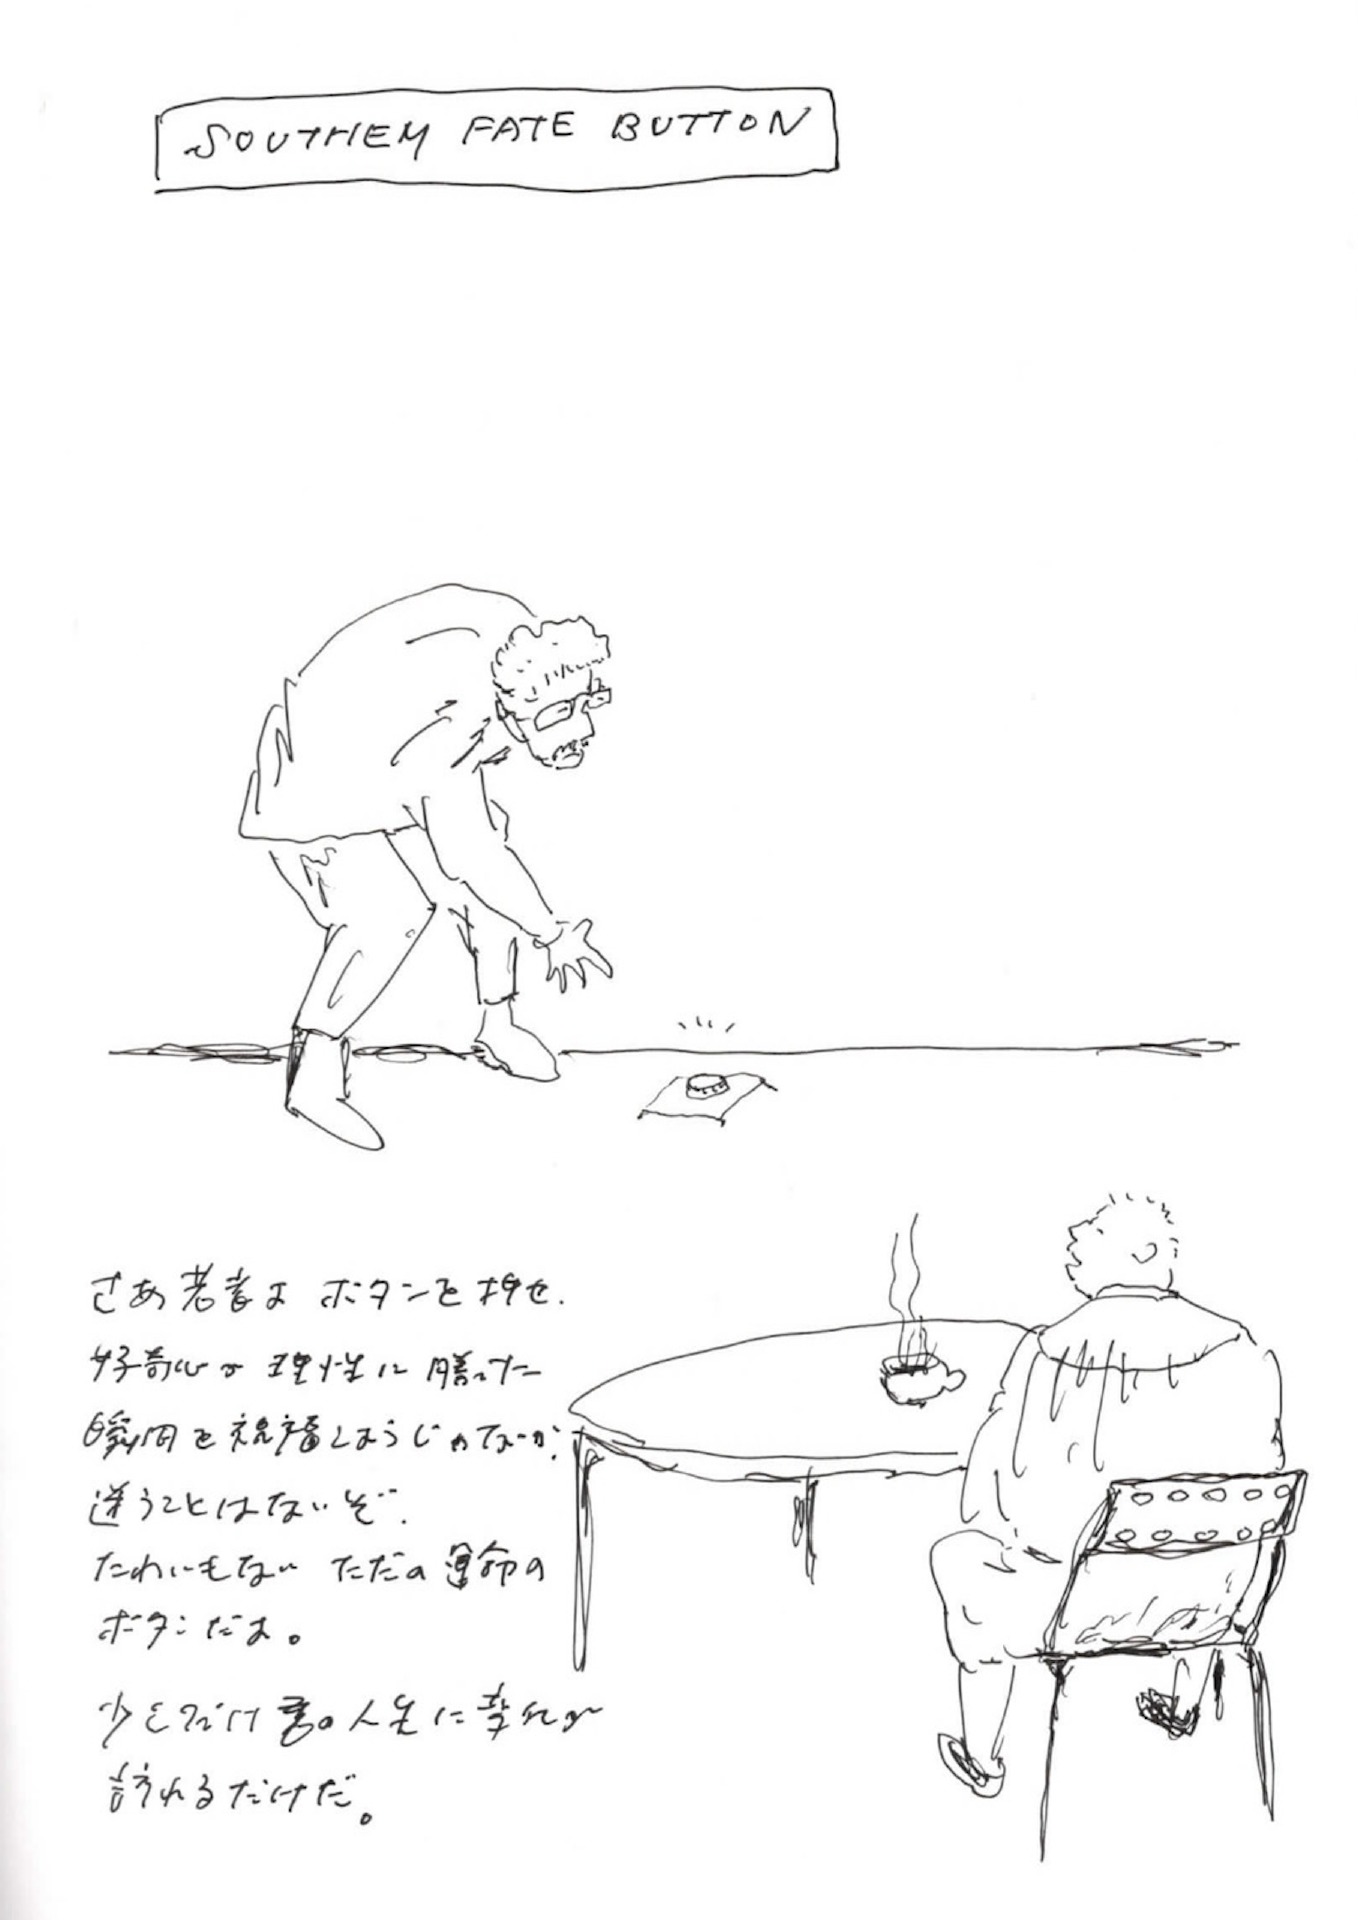 SOUTHERN FATE BUTTON
さあ若者よ ボタンを押せ.
好奇心が 理性に 勝った
瞬間を祝福しようじゃないか.
迷うことはないぞ.
たわいもない ただの運命の
ボタンだよ。
少しだけ君の人生に幸が
訪れるだけだ。